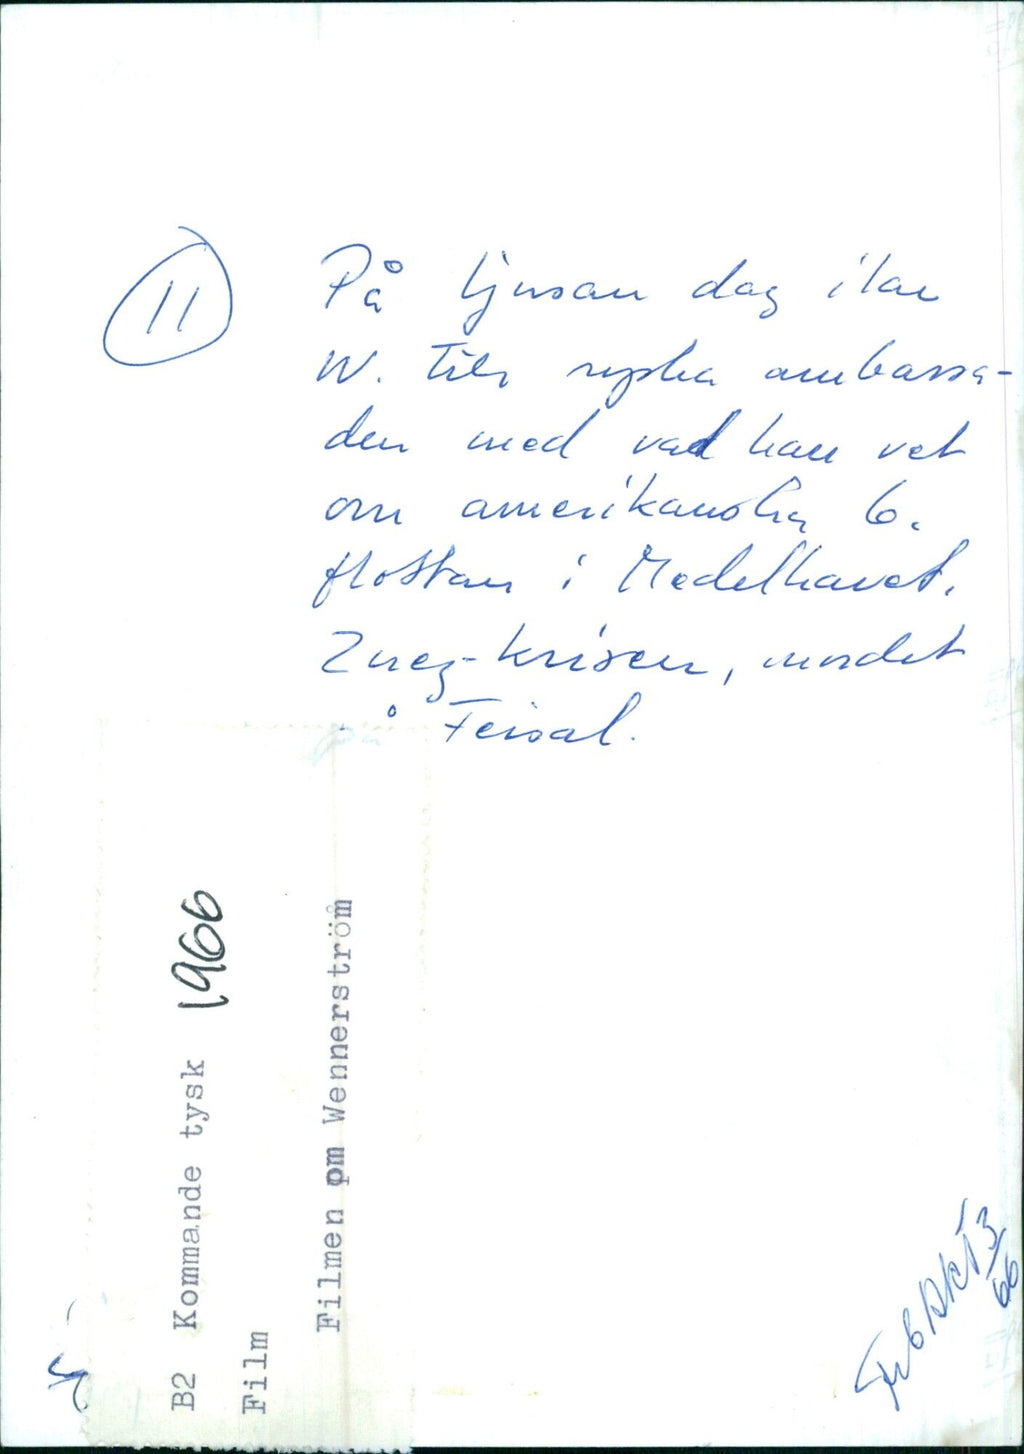 11
På ljusan dag ilar
W. till ryska ambassa-
den med vad han vet
om amerikanska 6.
flottan i Medelhavet,
Zuez-krisen, mordet
på Feisal.
B2 Kommande tysk 1966
Film
Filmen om Wennerström
3/66